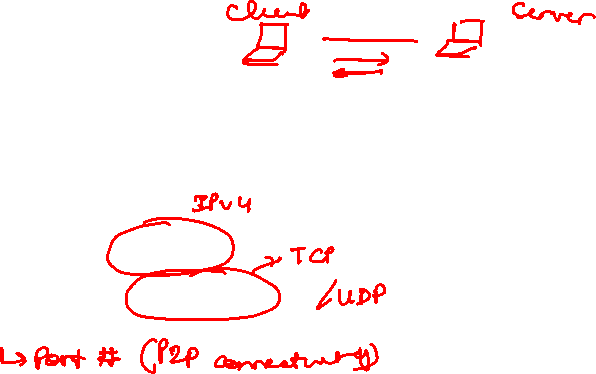 Client
Server
IPv4
TCP
/UDP
↳ Port # (P2P connectivity)